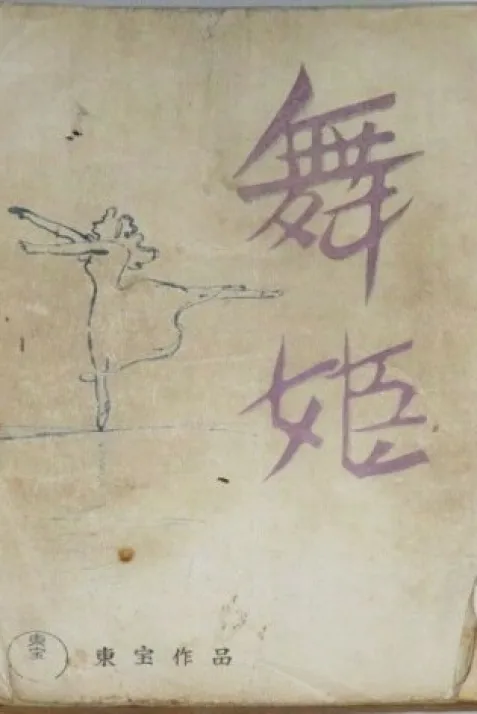 舞姫
東宝
東宝作品